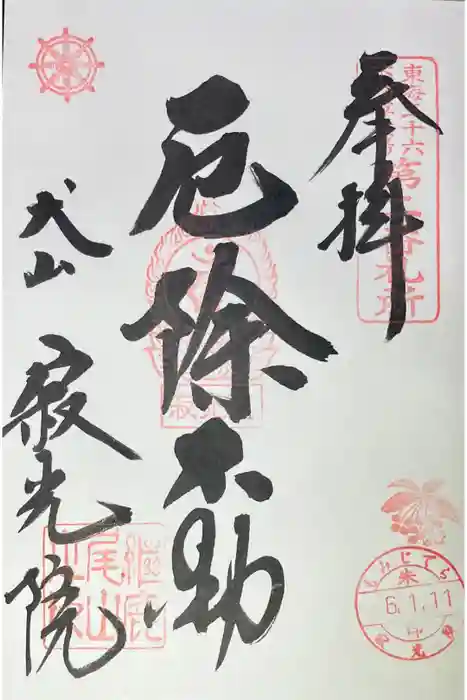 奉拝
厄除不動
犬山
寂光院
東海三十六
番札所
継鹿
尾山
もみじでら
6.1.11